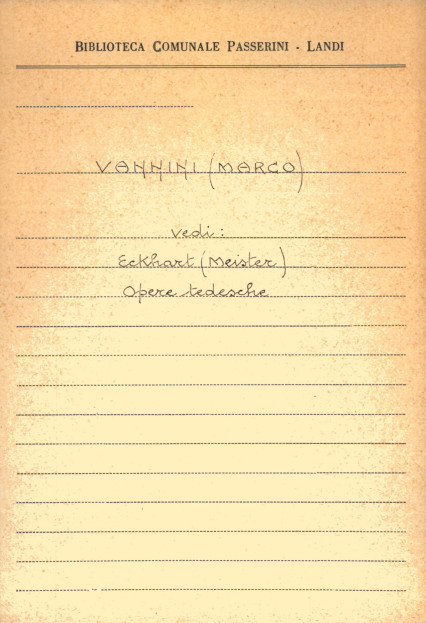 BIBLIOTECA COMUNALE PASSERINI - LANDI
VANNINI (MARCO)
vedi:
Eckhart (Meister)
Opere tedesche